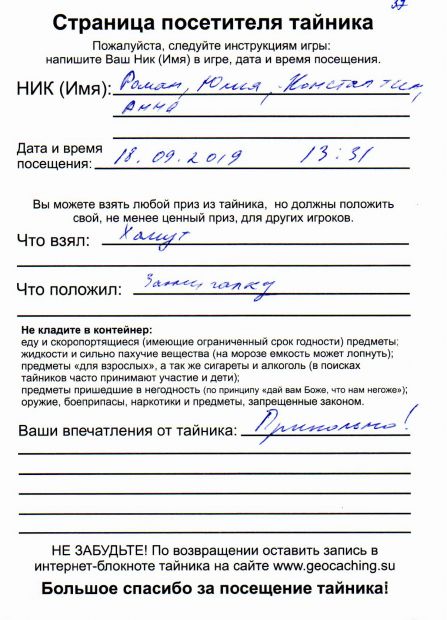 37
Страница посетителя тайника
Пожалуйста, следуйте инструкциям игры:
напишите Ваш Ник (Имя) в игре, дата и время посещения.
НИК (Имя): Роман, Юлия, Константин,
Анна
Дата и время
посещения: 18.09.2019 13:31
Вы можете взять любой приз из тайника, но должны положить
свой, не менее ценный приз, для других игроков.
Что взял: Хомут
Что положил: Зажигалку
Не кладите в контейнер:
еду и скоропортящиеся (имеющие ограниченный срок годности) предметы;
жидкости и сильно пахучие вещества (на морозе емкость может лопнуть);
предметы «для взрослых», а так же сигареты и алкоголь (в поисках
тайников часто принимают участие и дети);
предметы пришедшие в негодность (по принципу «дай вам Боже, что нам негоже»);
оружие, боеприпасы, наркотики и предметы, запрещенные законом.
Ваши впечатления от тайника: Прикольно!
НЕ ЗАБУДЬТЕ! По возвращении оставить запись в
интернет-блокноте тайника на сайте www.geocaching.su
Большое спасибо за посещение тайника!